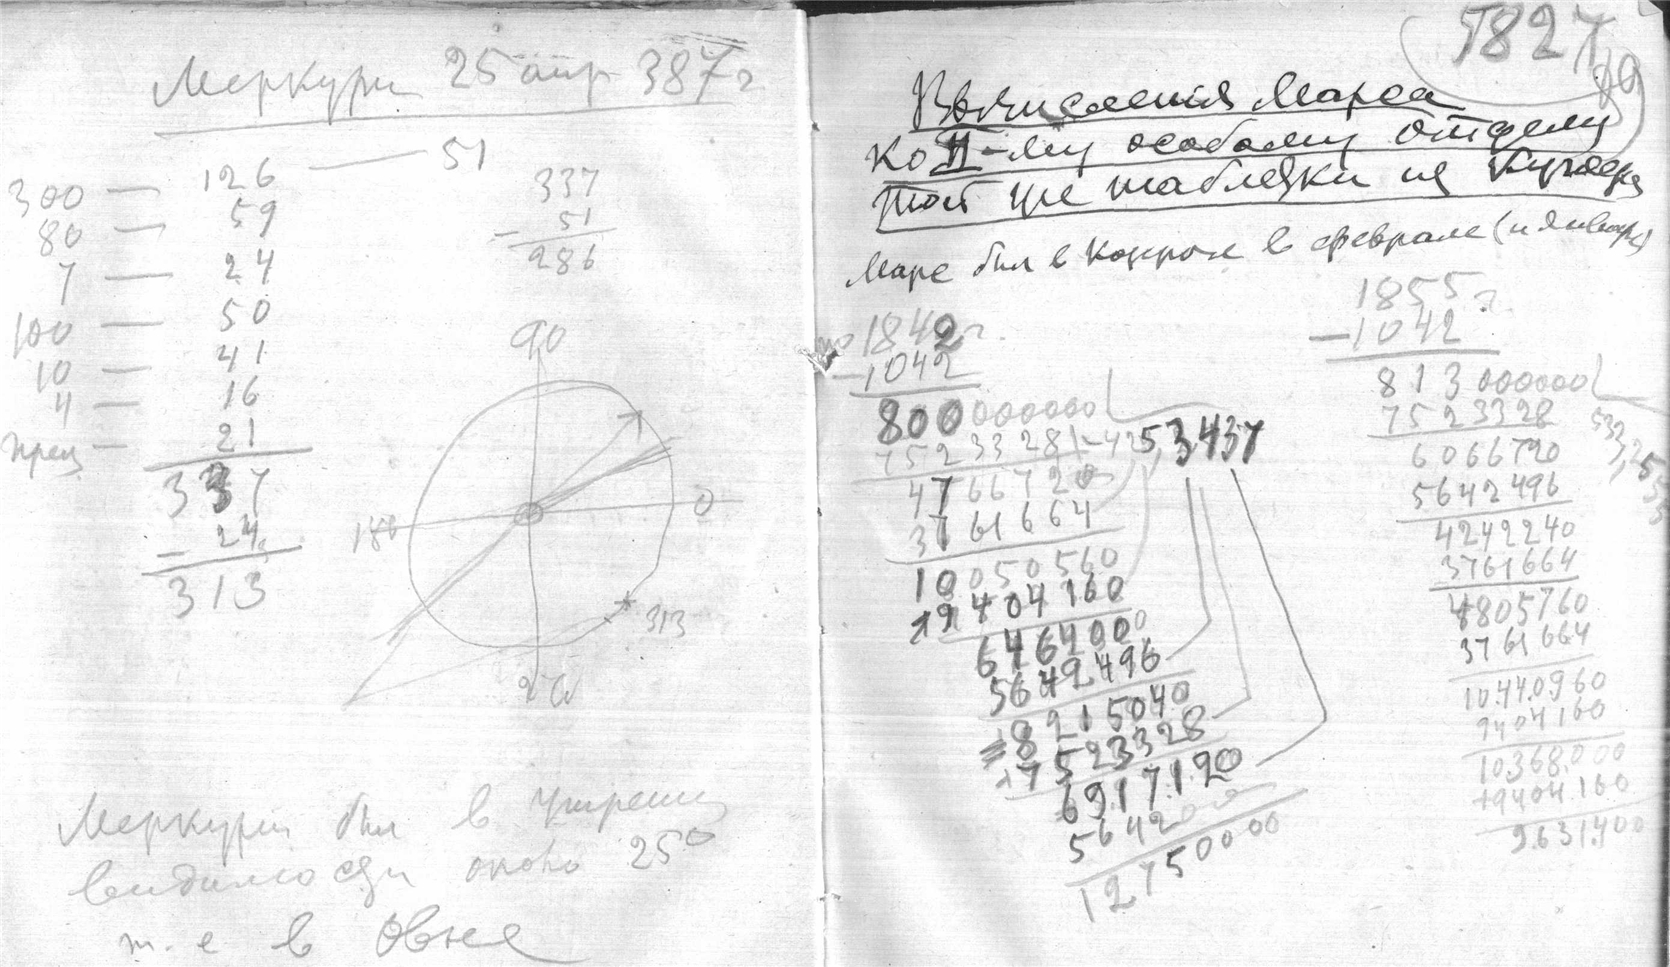 Меркурий 25 апр 387 г
300 — 126 — 51
80 — 59
7 — 24
100 — 50
10 — 41
4 — 16
прец — 21
337
− 24
313
337
− 51
286
90
180
0
313
270
Меркурий был в утренней
видимости около 25°
т. е в Овне
5827
Вычисления Марса
ко II-му особому отделу
той же таблички из
Марс был в в феврале (и январе)
1842 г
− 1042
800000000
7523328
53,437
47667200
37 61664
10050560
9404160
6464000
5642496
8215040
7523328
6917120
5642
12750000
1855 г
− 1042
813000000
7523328
6066720
5642496
4242240
3761664
4805760
3761664
10440960
9404160
10368000
9404160
9631400